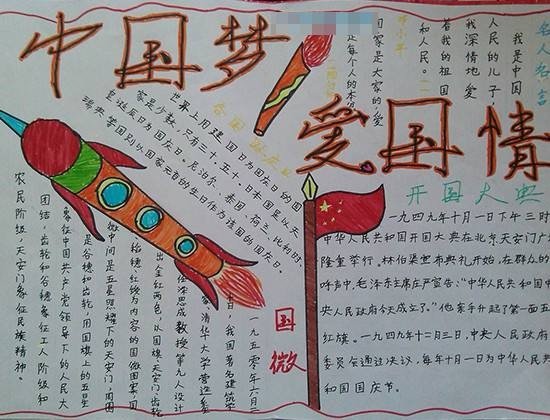 中国梦
爱国情
名人名言
我是中国
人民的儿子,
我深情地爱
着我的祖国
和人民。
邓小平
国家是大家的,爱
是每个人的本
各国国庆日
世界上用建国日为国庆日的国
家是少数,只有三十五.十国.日本国是以天
皇诞辰日为国庆日。尼泊尔、泰国、荷兰、比利时、
瑞典等国别外国家元首的生日作为该国的国庆日。
开国大典
一九四九年十月一日下午三时
中华人民共和国开国大典在北京天安门广
隆重举行。林伯渠宣布典礼开始,在群众的
呼声中,毛泽东主席庄严宣布:"中华人民共和国中
央人民政府今天成立了。"他亲手升起了第一面五
红旗。一九四九年十二月三日,中央人民政府
委员会通过决议,每年十月一日为中华人民共
和国国庆节。
国徽
一九五〇年六月二
日,我国著名建筑学
家清华大学营造系
梁思成教授等九人设计
出金红两色,以国旗天安门齿轮
稻穗红绶为内容的国徽图案,国
徽中间是五星照耀下的天安门,周围
是谷穗和齿轮,用国旗上的五星
象征中国共产党领导下的人民大
团结,齿轮和谷穗象征工人阶级和
农民阶级,天安门象征民族精神。